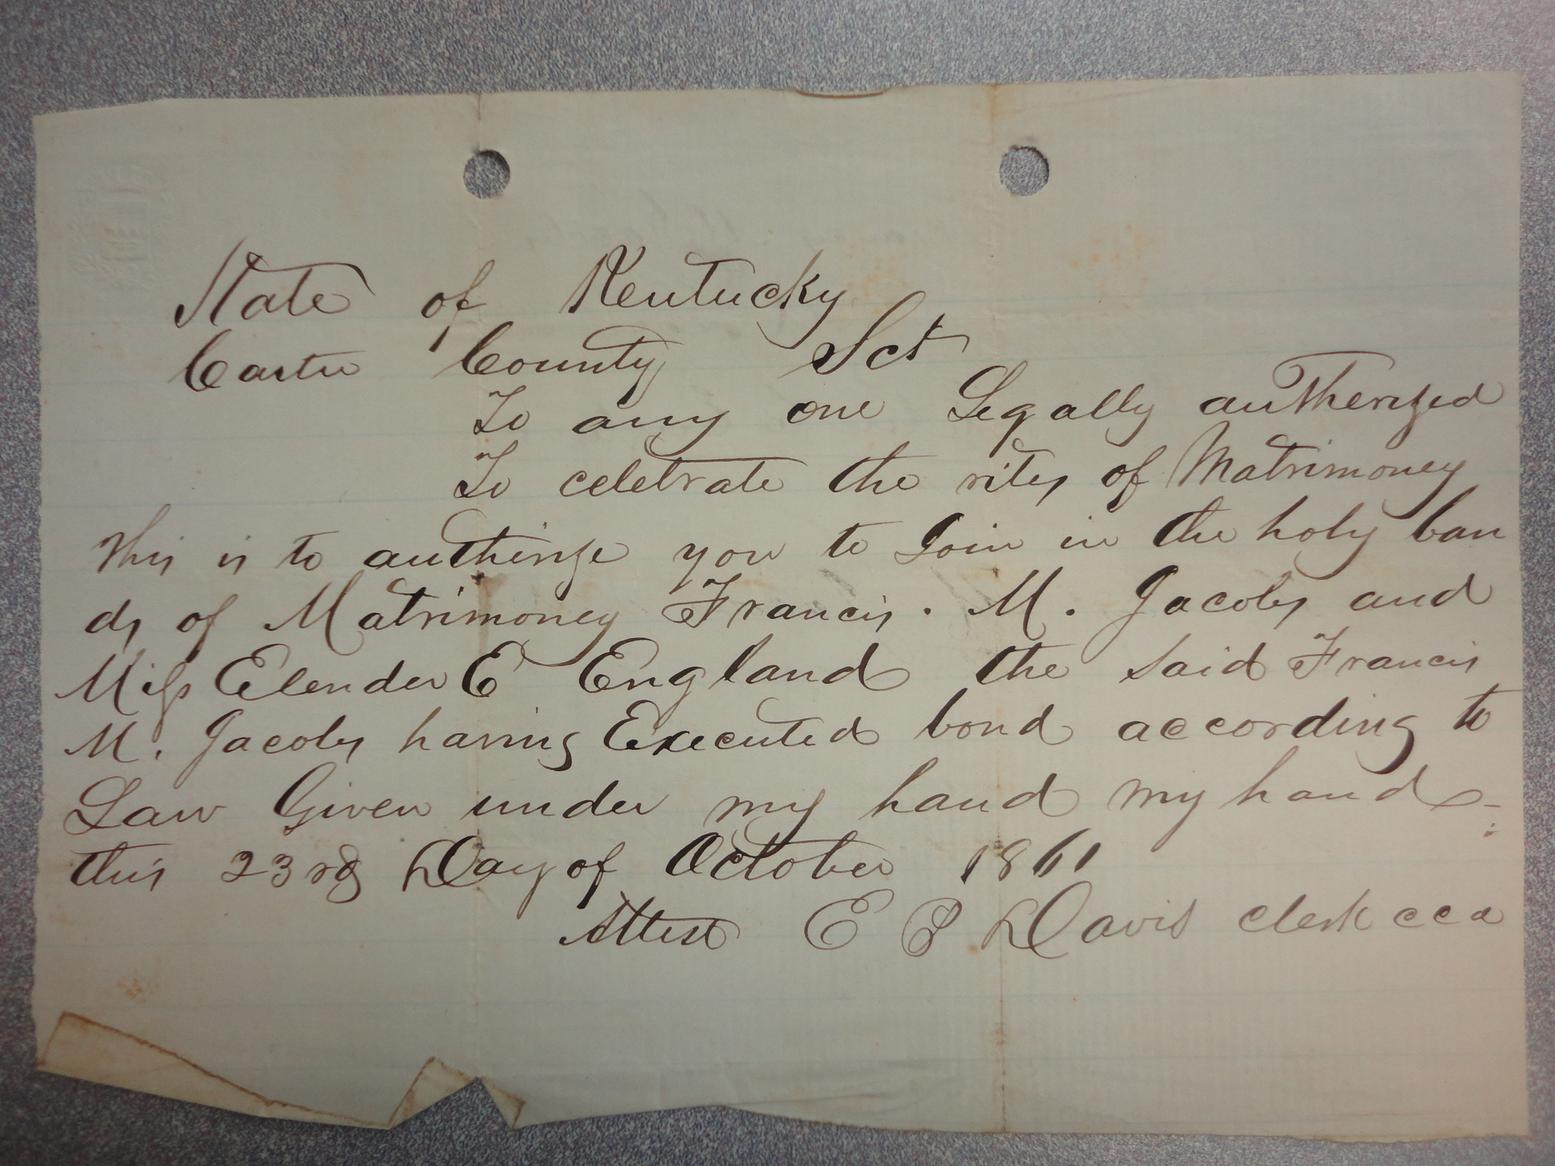 State of Kentucky
Carter County Sct
To any one Legally autherized
To celebrate the rites of Matrimoney
This is to autherize you to Join in the holy ban
ds of Matrimoney Francis. M. Jacobs and
Miss Elender E England the said Francis
M. Jacobs having Executed bond according to
Law Given under my hand my hand
this 23rd Day of October 1861
Attest E B Davis clerk ccc